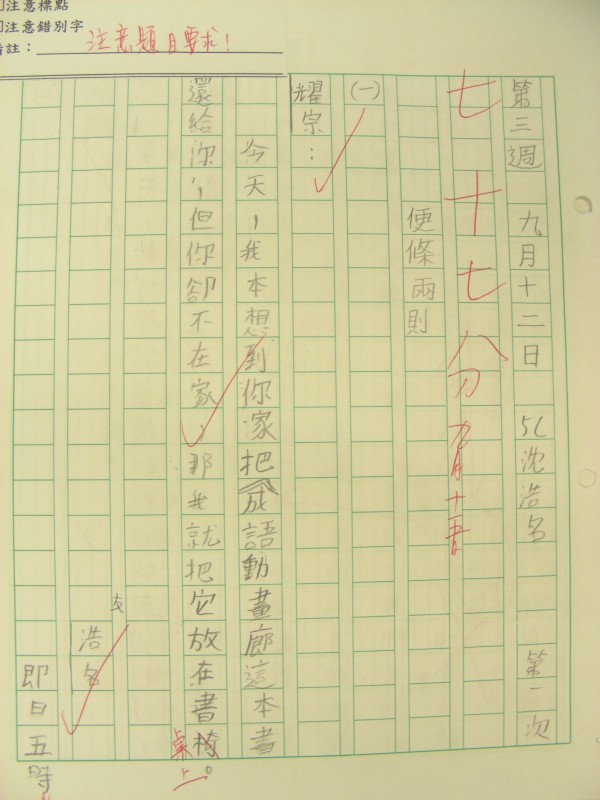 注意標點
注意錯別字
備註：注意題目要求！
第三週 九月十二日 5C 沈浩名 第一次
七十七分 九月十五日
便條兩則
(一)
耀宗：
今天，我本想到你家把成語動畫廊這本書
還給你，但你卻不在家，那我就把它放在書椅。
桌上
友
浩名
即日五時